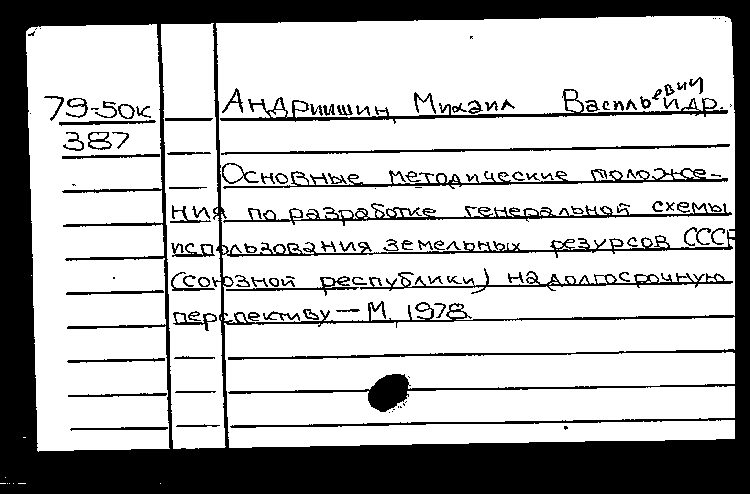 79-50к Андриишин, Михаил Васильевич и др.
387
Основные методические положе-
ния по разработке генеральной схемы
использования земельных резурсов СССР
(союзной республики) на долгосрочную
перспективу — М., 1978.